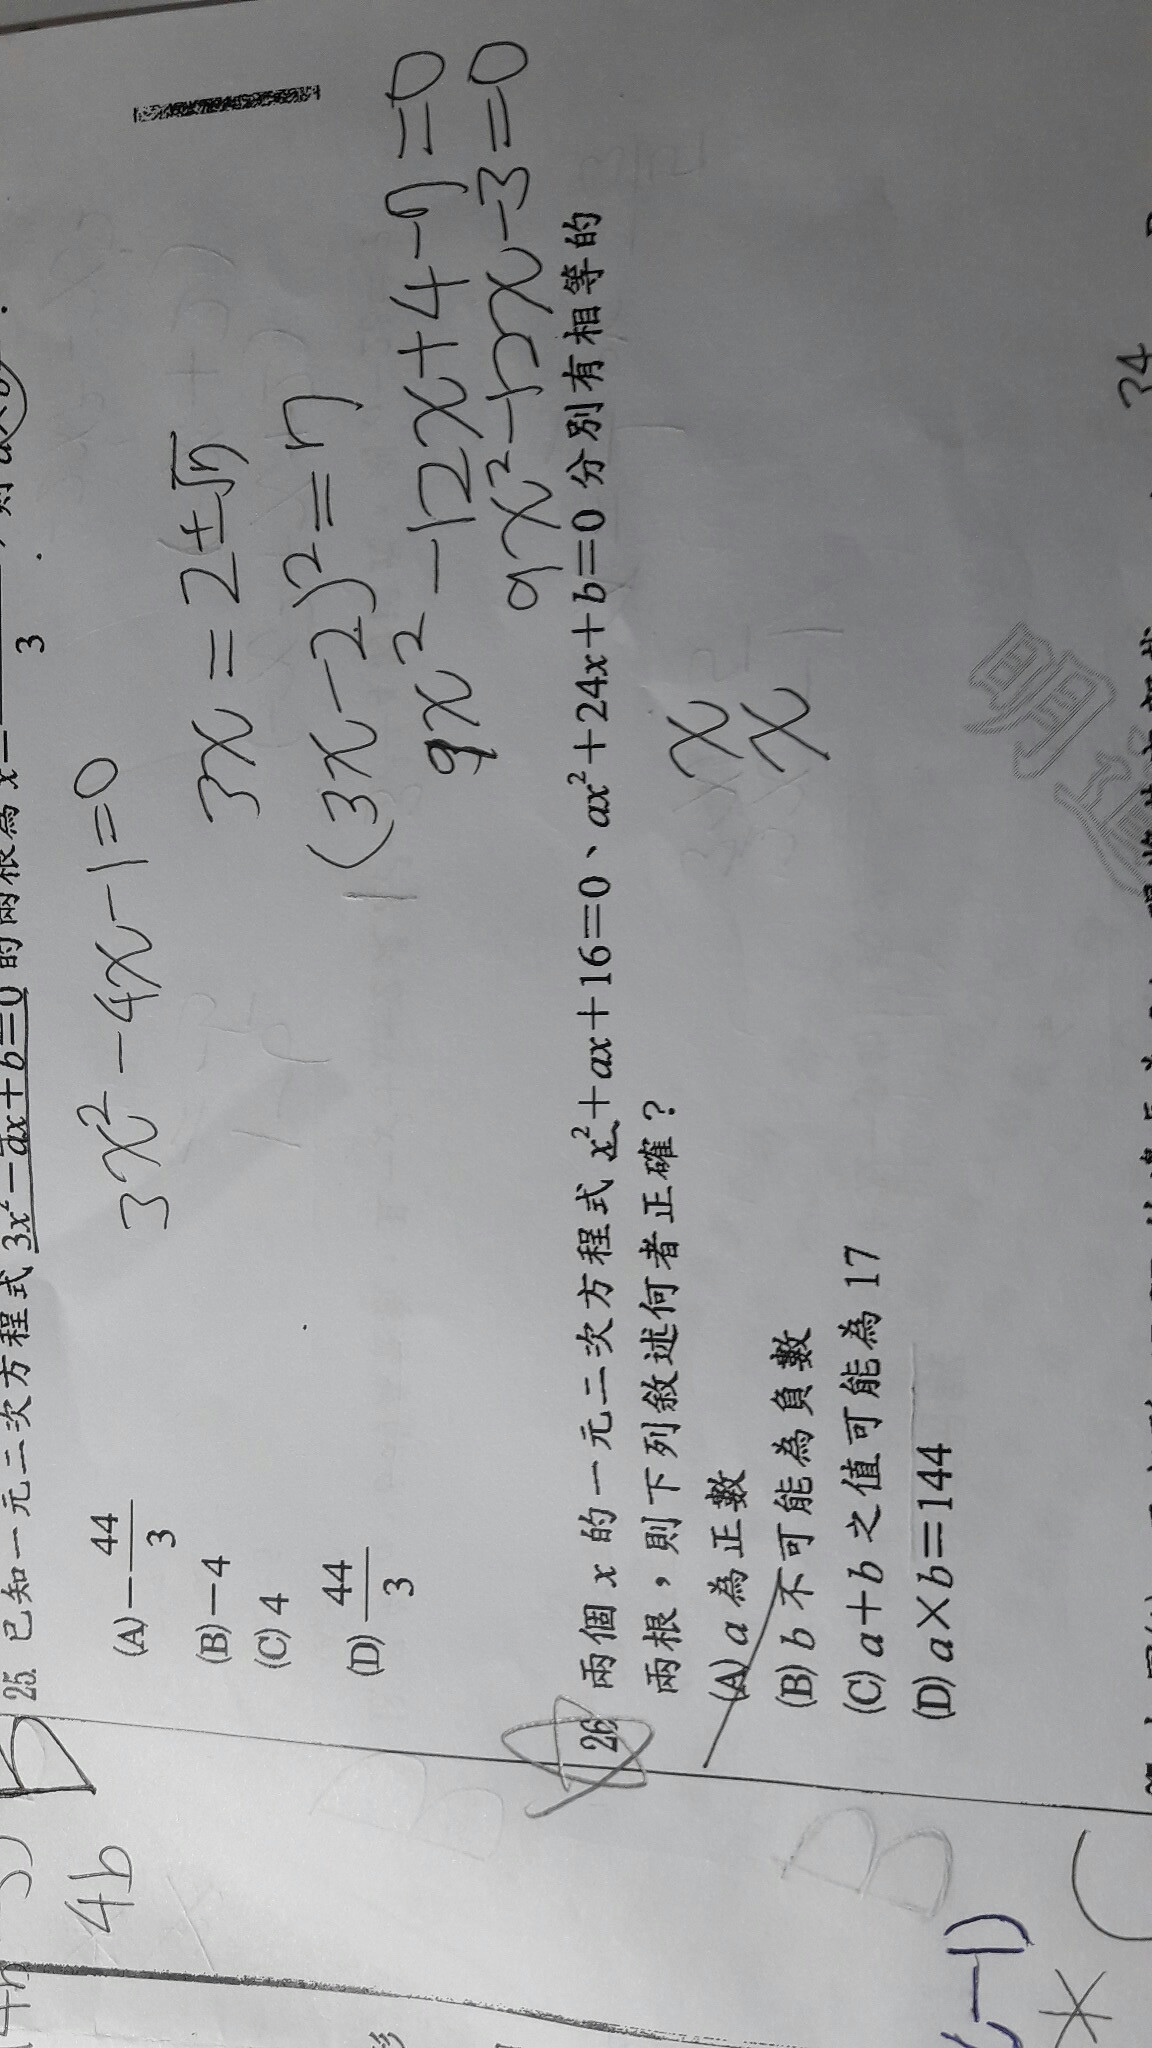 25. 已知一元二次方程式 3x²-4ax+b=0 的兩根為 x= 3
3x²-4x-1=0
3x=2±√7
(3x-2)²=7
9x²-12x+4-7=0
9x²-12x-3=0
(A) -44/3
(B) -4
(C) 4
(D) 44/3
26 兩個 x 的一元二次方程式 x²+ax+16=0、ax²+24x+b=0 分別有相等的
兩根，則下列敘述何者正確？
x
x
(A) a 為正數
(B) b 不可能為負數
(C) a+b 之值可能為 17
(D) a×b=144
4b
B
B
34